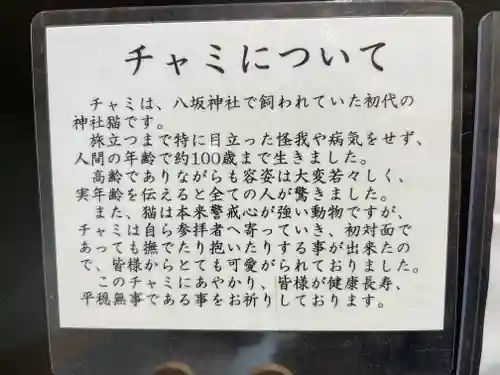 チャミについて
チャミは、八坂神社で飼われていた初代の
神社猫です。
旅立つまで特に目立った怪我や病気をせず、
人間の年齢で約100歳まで生きました。
高齢でありながらも容姿は大変若々しく、
実年齢を伝えると全ての人が驚きました。
また、猫は本来警戒心が強い動物ですが、
チャミは自ら参拝者へ寄っていき、初対面で
あっても撫でたり抱いたりする事が出来たの
で、皆様からとても可愛がられておりました。
このチャミにあやかり、皆様が健康長寿、
平穏無事である事をお祈りしております。